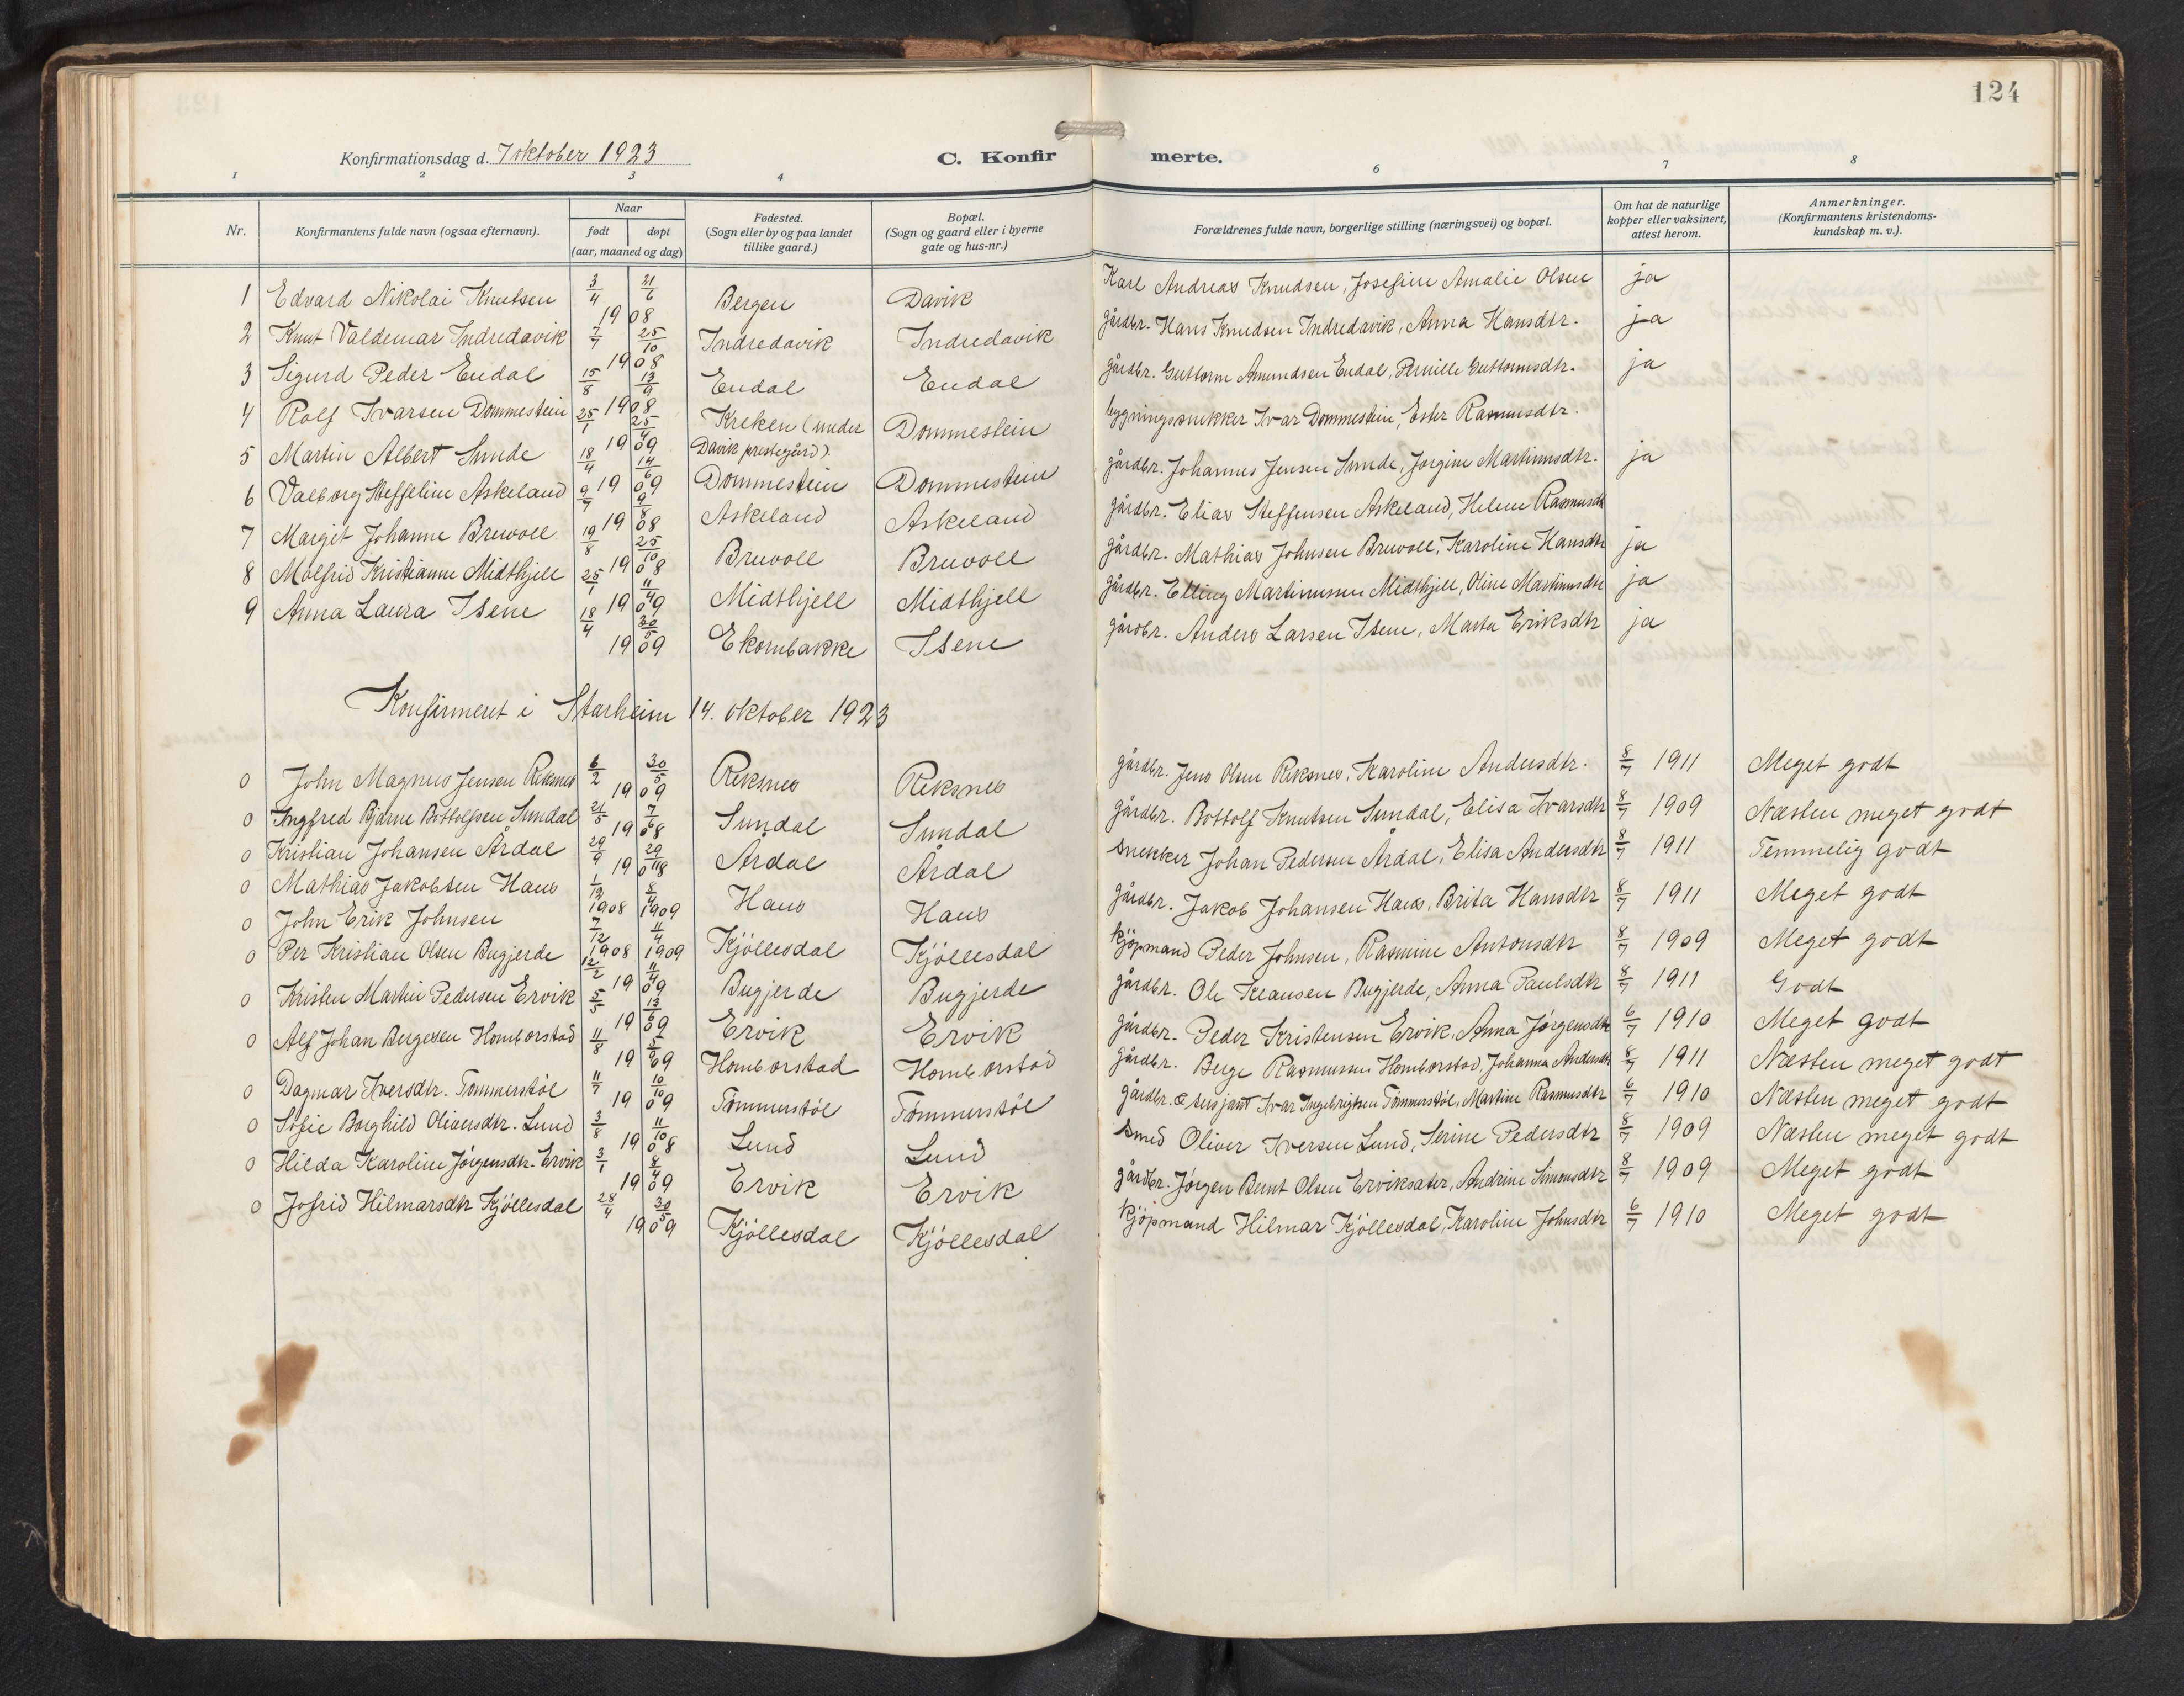 124
Konfirmationsdag d. 7 oktober 1923
C. Konfirmerte.
1 2 3 4 6 7 8
Nr. Konfirmantens fulde navn (ogsaa efternavn). Naar født døpt (aar, maaned og dag) Fødested. (Sogn eller by og paa landet tillike gaard.) Bopæl. (Sogn og gaard eller i byerne gate og hus-nr.) Forældrenes fulde navn, borgerlige stilling (næringsvei) og bopæl. Om hat de naturlige kopper eller vaksinert, attest herom. Anmerkninger. (Konfirmantens kristendomskundskap m. v.).
1 Edvard Nikolai Knutsen 3/4 21/6 1908 Bergen Davik Karl Andreas Knudsen, Josefine Amalie Olsen ja
2 Knut Valdemar Indredavik 7/7 25/10 1908 Indredavik Indredavik gårdbr. Hans Knudsen Indredavik, Anna Hansdtr. ja
3 Sigurd Peder Endal 15/8 13/9 1908 Endal Endal gårdbr. Guttorm Amundsen Endal, Pernille Guttormsdtr. ja
4 Rolf Ivarsen Dommestein 25/1 25/4 1909 Kreken (under Davik prestegård). Dommestein bygningssnekker Ivar Dommestein, Ester Rasmusdtr.
5 Martin Albert Sunde 18/4 14/6 1909 Dommestein Dommestein gårdbr. Johannes Jensen Sunde, Jorgine Martinusdtr. ja
6 Valborg Steffeline Askeland 9/7 9/8 1908 Askeland Askeland gårdbr. Elias Steffensen Askeland, Helene Rasmusdtr
7 Margit Johanne Bruvoll 19/8 25/10 1908 Bruvoll Bruvoll gårdbr. Mathias Johnsen Bruvoll, Karoline Hansdtr ja
8 Målfrid Kristianne Midthjell 25/1 11/4 1909 Midthjell Midthjell gårdbr. Elling Martinussen Midthjell, Oline Martinusdtr ja
9 Anna Laura Isene 18/4 30/5 1909 Ekornbakke Isene gårdbr. Anders Larsen Isene, Marta Eriksdtr ja
Konfirmeret i Starheim 14. oktober 1923
0 John Magnus Jensen Reksnes 6/2 30/5 1909 Reksnes Reksnes gårdbr. Jens Olsen Reksnes, Karoline Andersdtr. 8/7 1911 Meget godt
0 Ingfred Bjarne Bottolfsen Sundal 21/5 7/6 1908 Sundal Sundal gårdbr. Bottolf Knutsen Sundal, Elisa Ivarsdtr 8/7 1909 Næsten meget godt
0 Kristian Johansen Årdal 29/9 29/11 1908 Årdal Årdal snekker Johan Pedersen Årdal, Elisa Andersdtr 8/7 1911 Temmelig godt
0 Mathias Jakobsen Haus 1/12 1908 8/4 1909 Haus Haus gårdbr. Jakob Johansen Haus, Brita Hansdtr 8/7 1911 Meget godt
0 John Erik Johnsen 7/12 1908 11/4 1909 Kjöllesdal Kjöllesdal kjöpmand Peder Johnsen, Rasmine Antonsdtr 8/7 1909 Meget godt
0 Per Kristian Olsen Bugjerde 12/2 11/4 1909 Bugjerde Bugjerde gårdbr. Ole Klausen Bugjerde, Anna Paulsdtr 8/7 1911 Godt
0 Kristen Martin Pedersen Ervik 5/5 13/6 1909 Ervik Ervik gårdbr. Peder Kristensen Ervik, Anna Jörgensdtr 6/7 1910 Meget godt
0 Alf Johan Bergesen Homborstad 11/8 5/9 1909 Homborstad Homborstad gårdbr. Berge Rasmussen Homborstad, Johanna Andersdtr 8/7 1911 Næsten meget godt
0 Dagmar Iversdtr. Tommerstöl 11/7 10/10 1909 Tömmerstöl Tömmerstöl gårdbr. & sersjant Ivar Ingebrigtsen Tömmerstöl, Martine Rasmusdtr 6/7 1910 Næsten meget godt
0 Sofie Borghild Oliversdtr. Lund 3/8 11/10 1908 Lund Lund Smed Oliver Iversen Lund, Serine Pedersdtr 8/7 1909 Næsten meget godt
0 Hilda Karoline Jörgensdtr. Ervik 3/1 8/4 1909 Ervik Ervik gårdbr. Jörgen Bernt Olsen Erviksæter, Andrine Simonsdtr 8/7 1909 Meget godt
0 Jofrid Hilmarsdtr Kjöllesdal 28/4 30/5 1909 Kjöllesdal Kjöllesdal kjöpmand Hilmar Kjöllesdal, Karoline Johnsdtr 6/7 1910 Meget godt